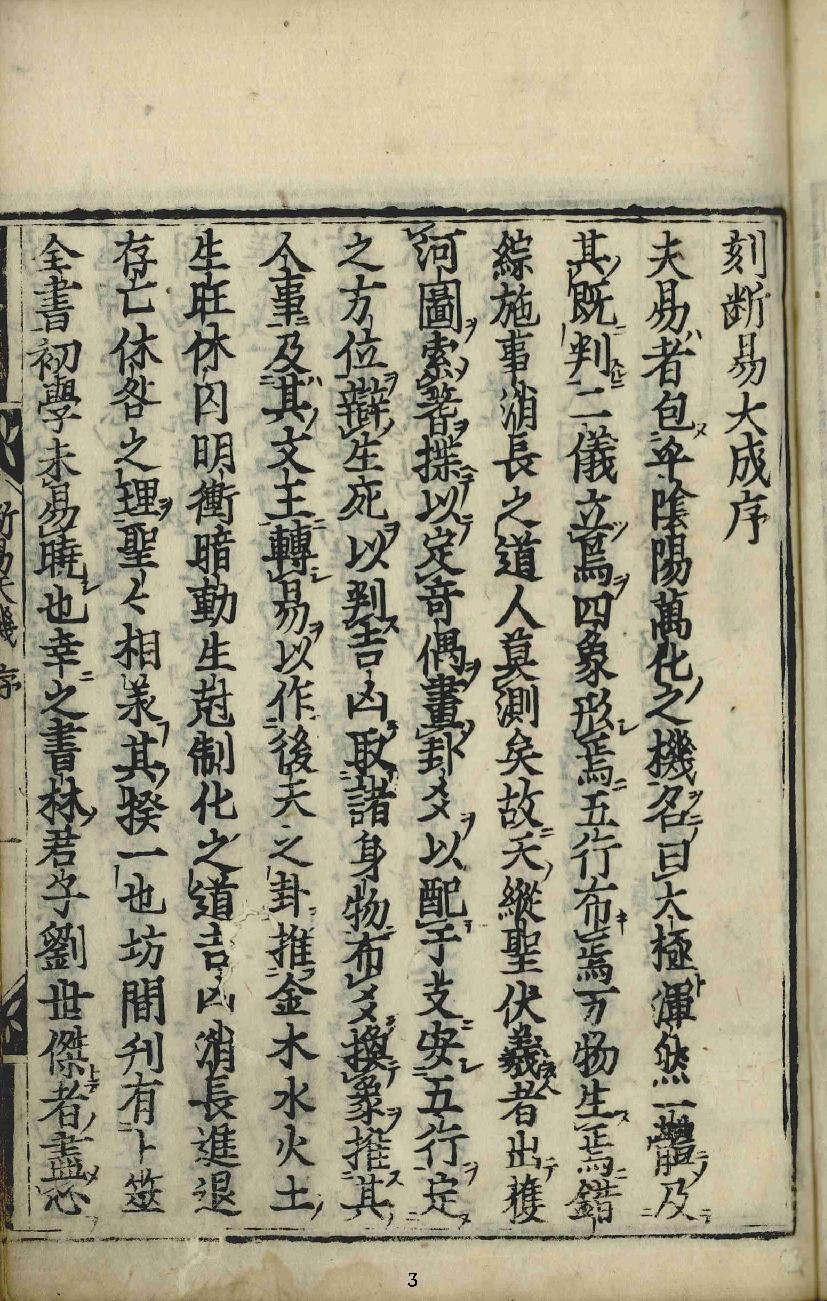 刻断易大成序
夫易者包牢陰陽萬化之機名曰太極渾然一體及
其既判二儀立焉四象形焉五行布焉万物生焉錯
綜施事消長之道人莫測矣故天縱聖伏羲者出獲
河圖索蓍揲以定奇偶畫卦爻以配干支安五行定
之方位辯生死以判吉凶取諸身物布爻換象推其
人事及其文王轉易以作後天之卦推金木水火土
生旺休囚明衝暗動生尅制化之道吉凶消長進退
存亡休咎之理聖〻相羕其揆一也坊間刋有卜筮
全書初學未易曉也幸之書林君子劉世傑者盡心
断易大機 序
3